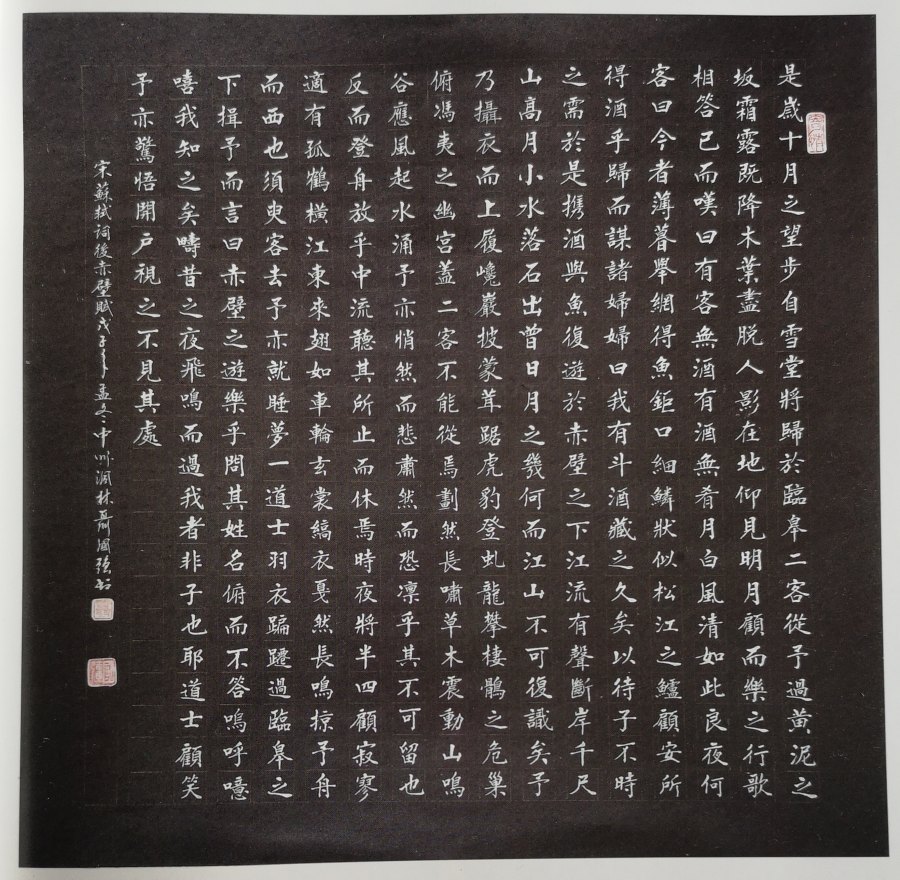 是歲十月之望步自雪堂將歸於臨皋二客從予過黃泥之
坂霜露既降木葉盡脱人影在地仰見明月顧而樂之行歌
相答已而嘆曰有客無酒有酒無肴月白風清如此良夜何
客曰今者薄暮舉網得魚鉅口細鱗狀似松江之鱸顧安所
得酒乎歸而謀諸婦婦曰我有斗酒藏之久矣以待子不時
之需於是攜酒與魚復遊於赤壁之下江流有聲斷岸千尺
山高月小水落石出曾日月之幾何而江山不可復識矣予
乃攝衣而上履巉巖披蒙茸踞虎豹登虬龍攀棲鶻之危巢
俯馮夷之幽宮盖二客不能從焉劃然長嘯草木震動山鳴
谷應風起水涌予亦悄然而悲肅然而恐凛乎其不可留也
反而登舟放乎中流聽其所止而休焉時夜將半四顧寂寥
適有孤鶴橫江東來翅如車輪玄裳縞衣戛然長鳴掠予舟
而西也須臾客去予亦就睡夢一道士羽衣蹁躚過臨皋之
下揖予而言曰赤壁之遊樂乎問其姓名俯而不答嗚呼噫
嘻我知之矣疇昔之夜飛鳴而過我者非子也耶道士顧笑
予亦驚悟開戶視之不見其處
宋蘇軾詞後赤壁賦戊子年孟冬中州澗林聶國強書